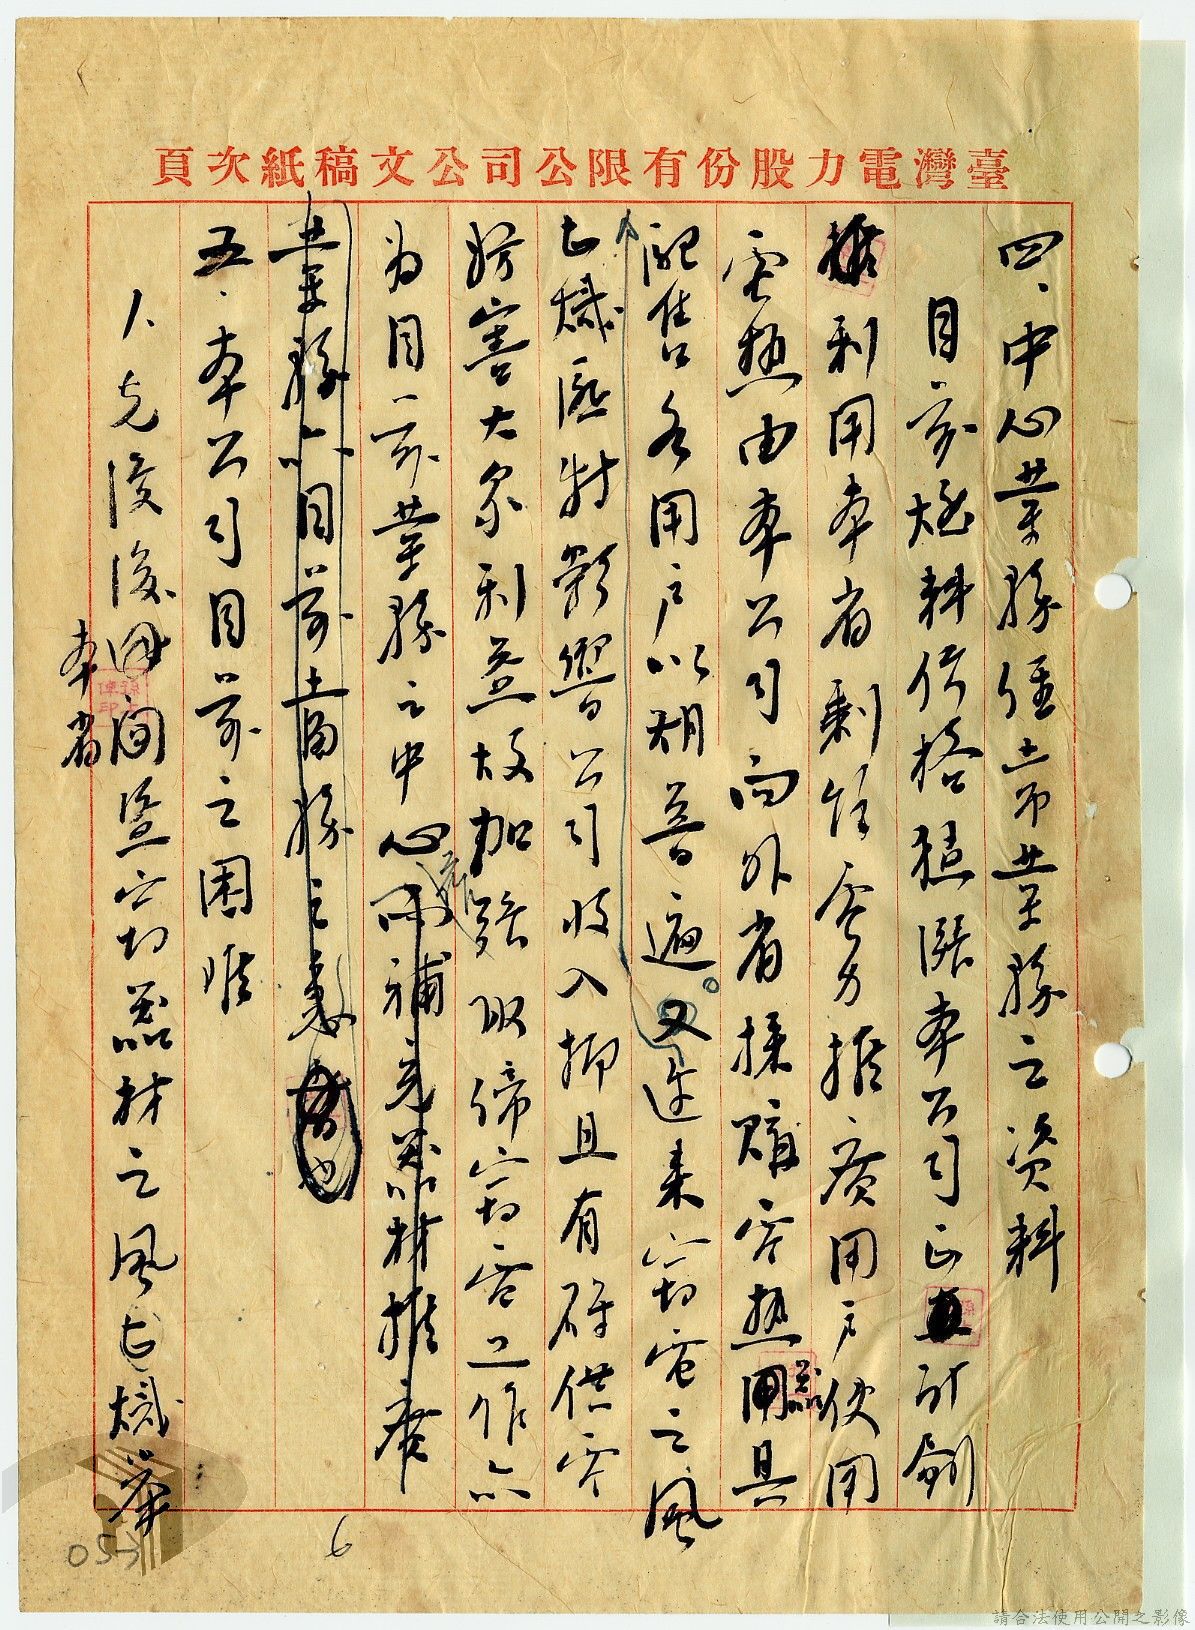 臺灣電力股份有限公司公文稿紙次頁
四、中心業務經常業務之資料
目前燃料價格猛漲本公司正計劃
利用本省剩餘電力推廣用戶使用
電熱由本公司向外省採購電熱器具
配售各用戶以期普遍。又近來竊電之風
亡熾匪特影響公司收入抑且有礙供電
妨害大眾利益故加強取締竊電工作亦
為目前業務之中心補充器材推廣
業務亦目前當務之急
五、本公司目前之困難
1.光復後本省間盜竊器材之風亡熾舉
6
053
請合法使用公開之影像